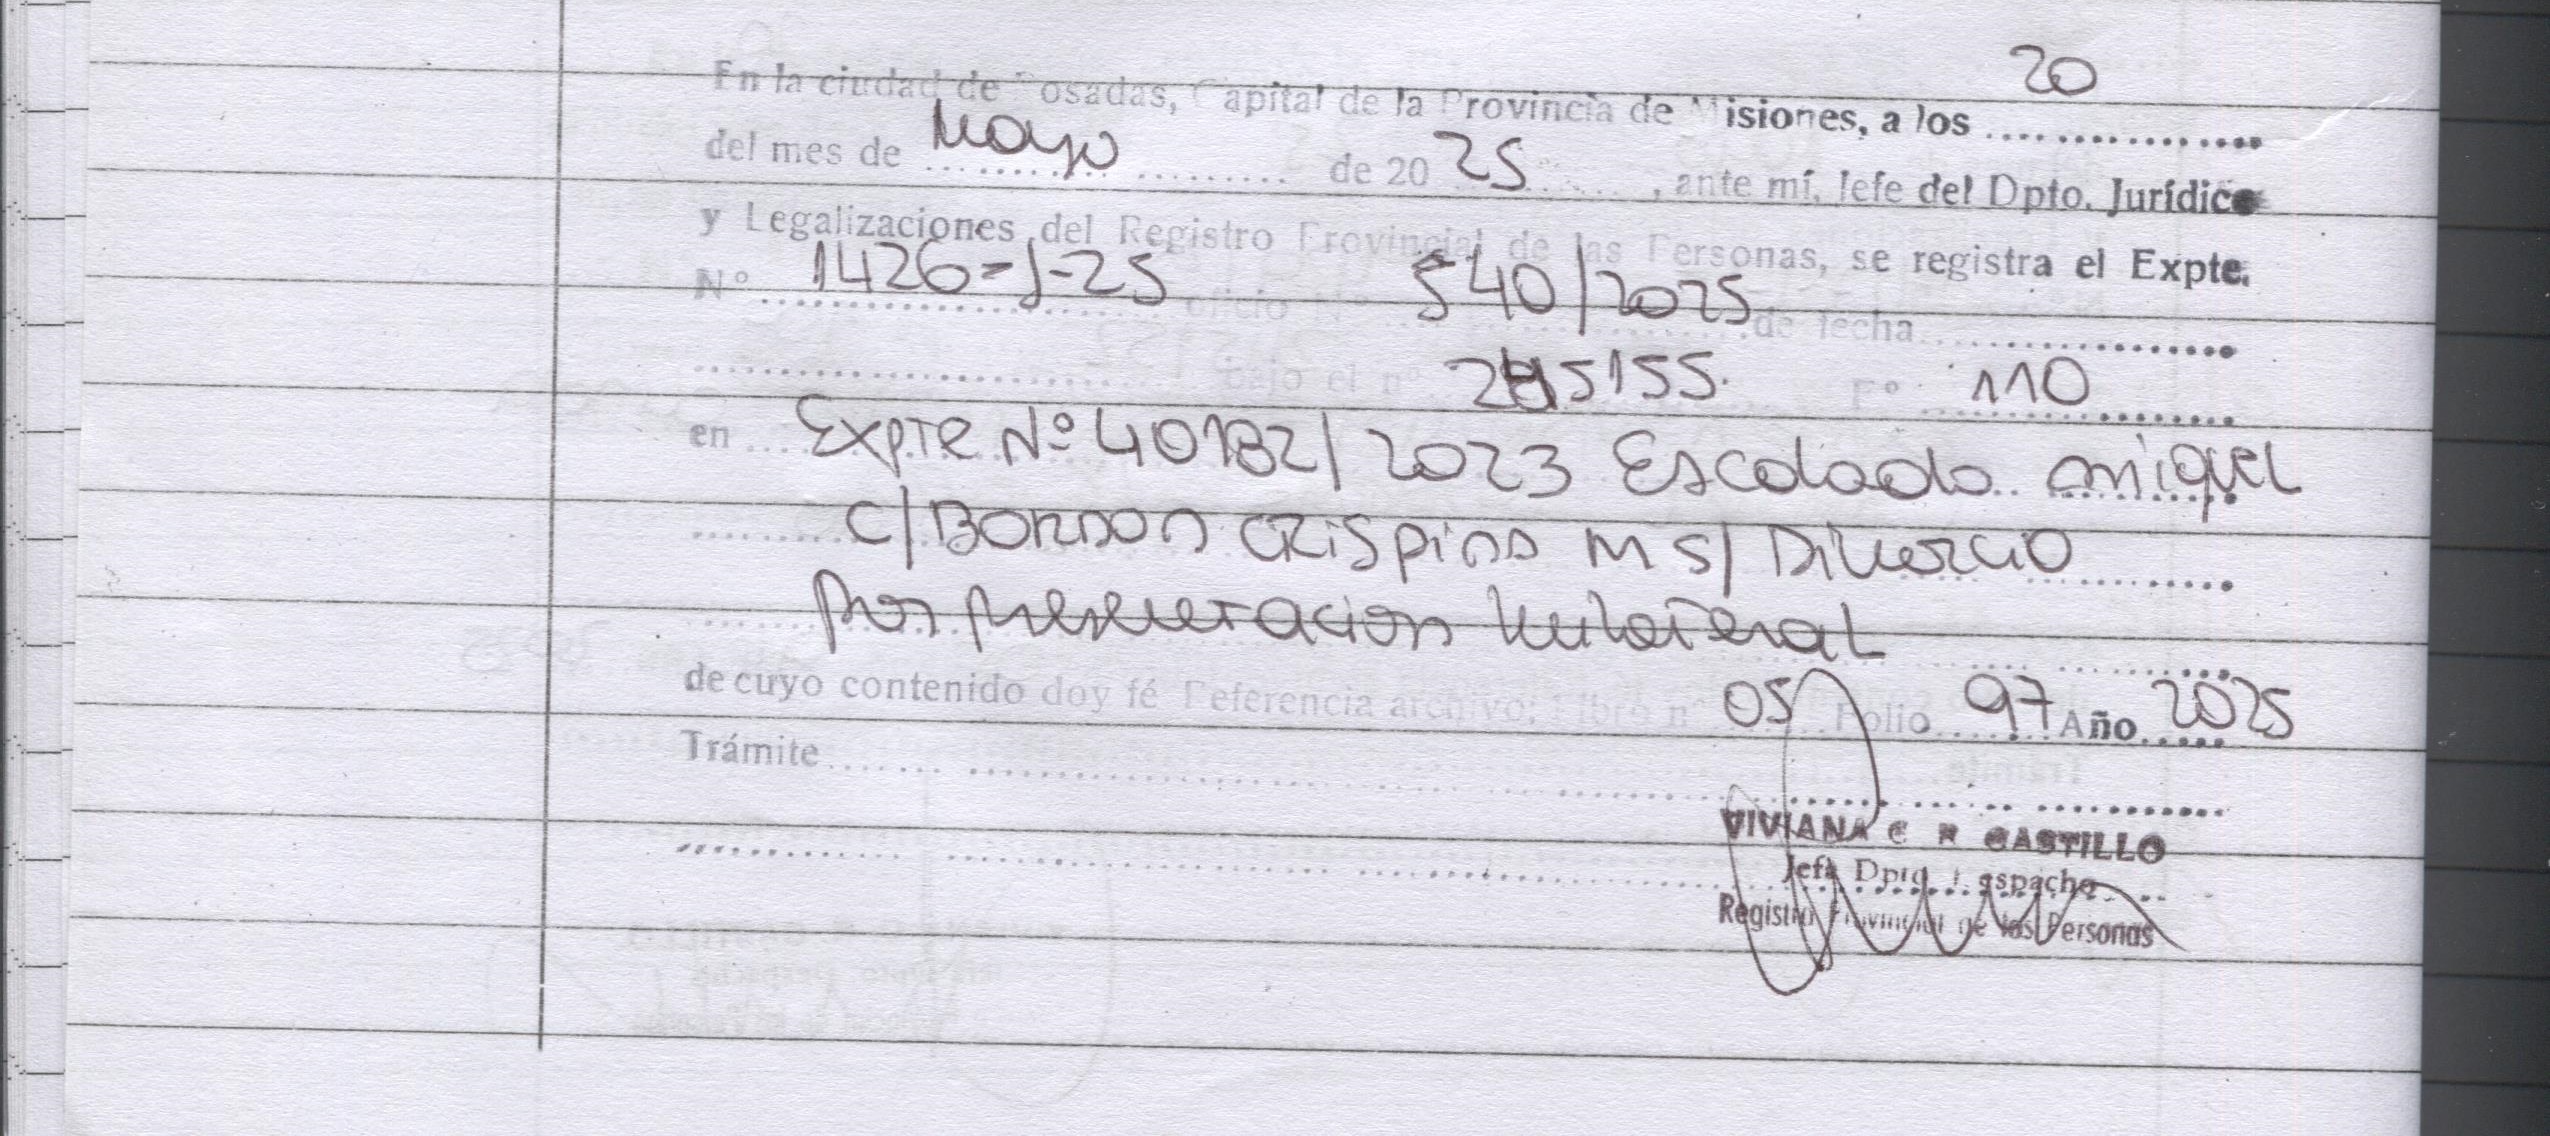 En la ciudad de Posadas, Capital de la Provincia de Misiones, a los 20
del mes de Mayo de 2025, ante mí, Jefe del Dpto. Jurídico
y Legalizaciones del Registro Provincial de las Personas, se registra el Expte.
Nº 1426-J-25 oficio Nº 540/2025 de fecha
bajo el nº Fº 110
en Expte Nº 40182/2023 Escalada Miguel
c/ Bordon Crispina M s/ Divorcio
por presentacion Unilateral
de cuyo contenido doy fé Referencia archivo: Libro nº 05 Folio 97 Año 2025
Trámite
VIVIANA C R CASTILLO
Jefa Dpto Despacho
Registro Provincial de las Personas